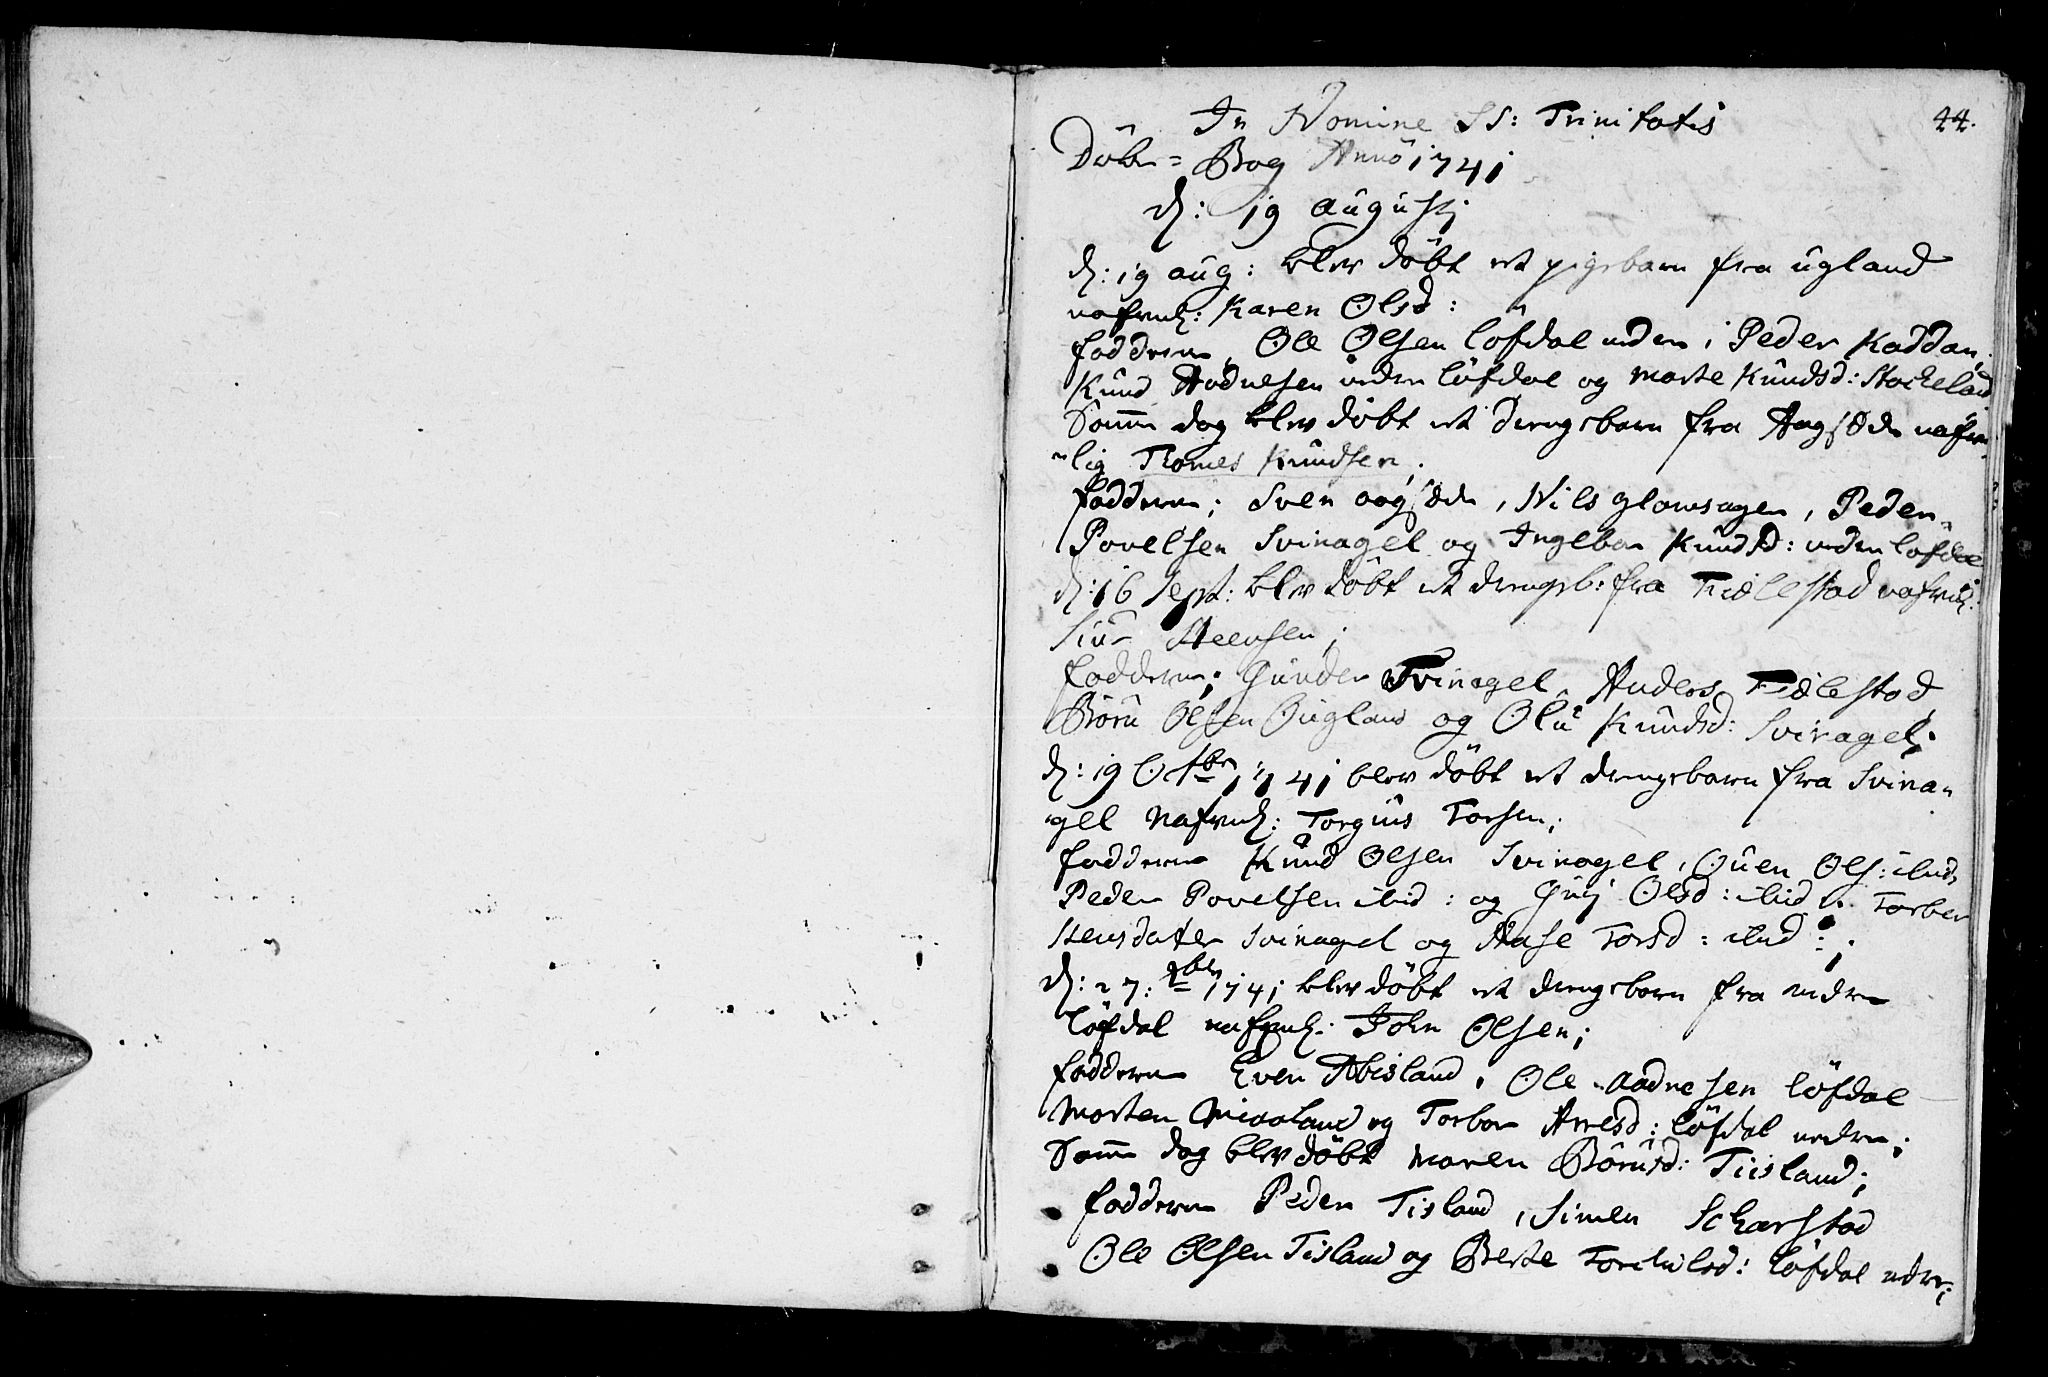 44.
In Nomine SS: Trinitatis
Döbe = Bog Anno 1741
d: 19 augusti
d: 19 aug: blev döbt et pigebarn fra ugland
nafnl: Karen Olsd:
faddere, Ole Olsen löfdal nedre, Peder Kaddan,
Knud Aadnesen nedre löfdal og Marte Knudsd: Stockeland
Samme dag blev döbt et drengebarn fra Aagsæde nafn-
lig Thomes Knudsen.
faddere; Sven aagsæde, Nils glomsagen, Peder
Povelsen Svinagel og Ingebor Knudsd: nedre löfdal
d: 16 Sept: blev döbt et drengeb: fra Fidlestad nafnl:
Siur Steensen;
faddere; Gunder Svinagel, Anders Fidlestad
Börü Olsen Öugland og Olü Knudsd: Svinagel;
d: 19 Octbr 1741 blev döbt et drengebarn fra Svina-
gel nafnl: Torgius Torsen;
faddere Knud Olsen Svinagel, Ouen Ols: ibid,
Peder Povelsen ibid: og Guri Olsd: ibid: Torber
Stensdater Svinagel og Aase Torsd: ibid:;
d: 27: 1741 blev döbt et drengebarn fra nedre
löfdal nafnl: John Olsen;
faddere Even Abisland, Ole Aadnesen löfdal
Morten og Torbor Arresd: löfdal nedre;
Samme dag blev döbt Maren Börüsd: Tiisland;
faddere Peder Tisland, Simen Scharstad
Ole Olsen Tisland og Berte Torchilsd: löfdal nedre;